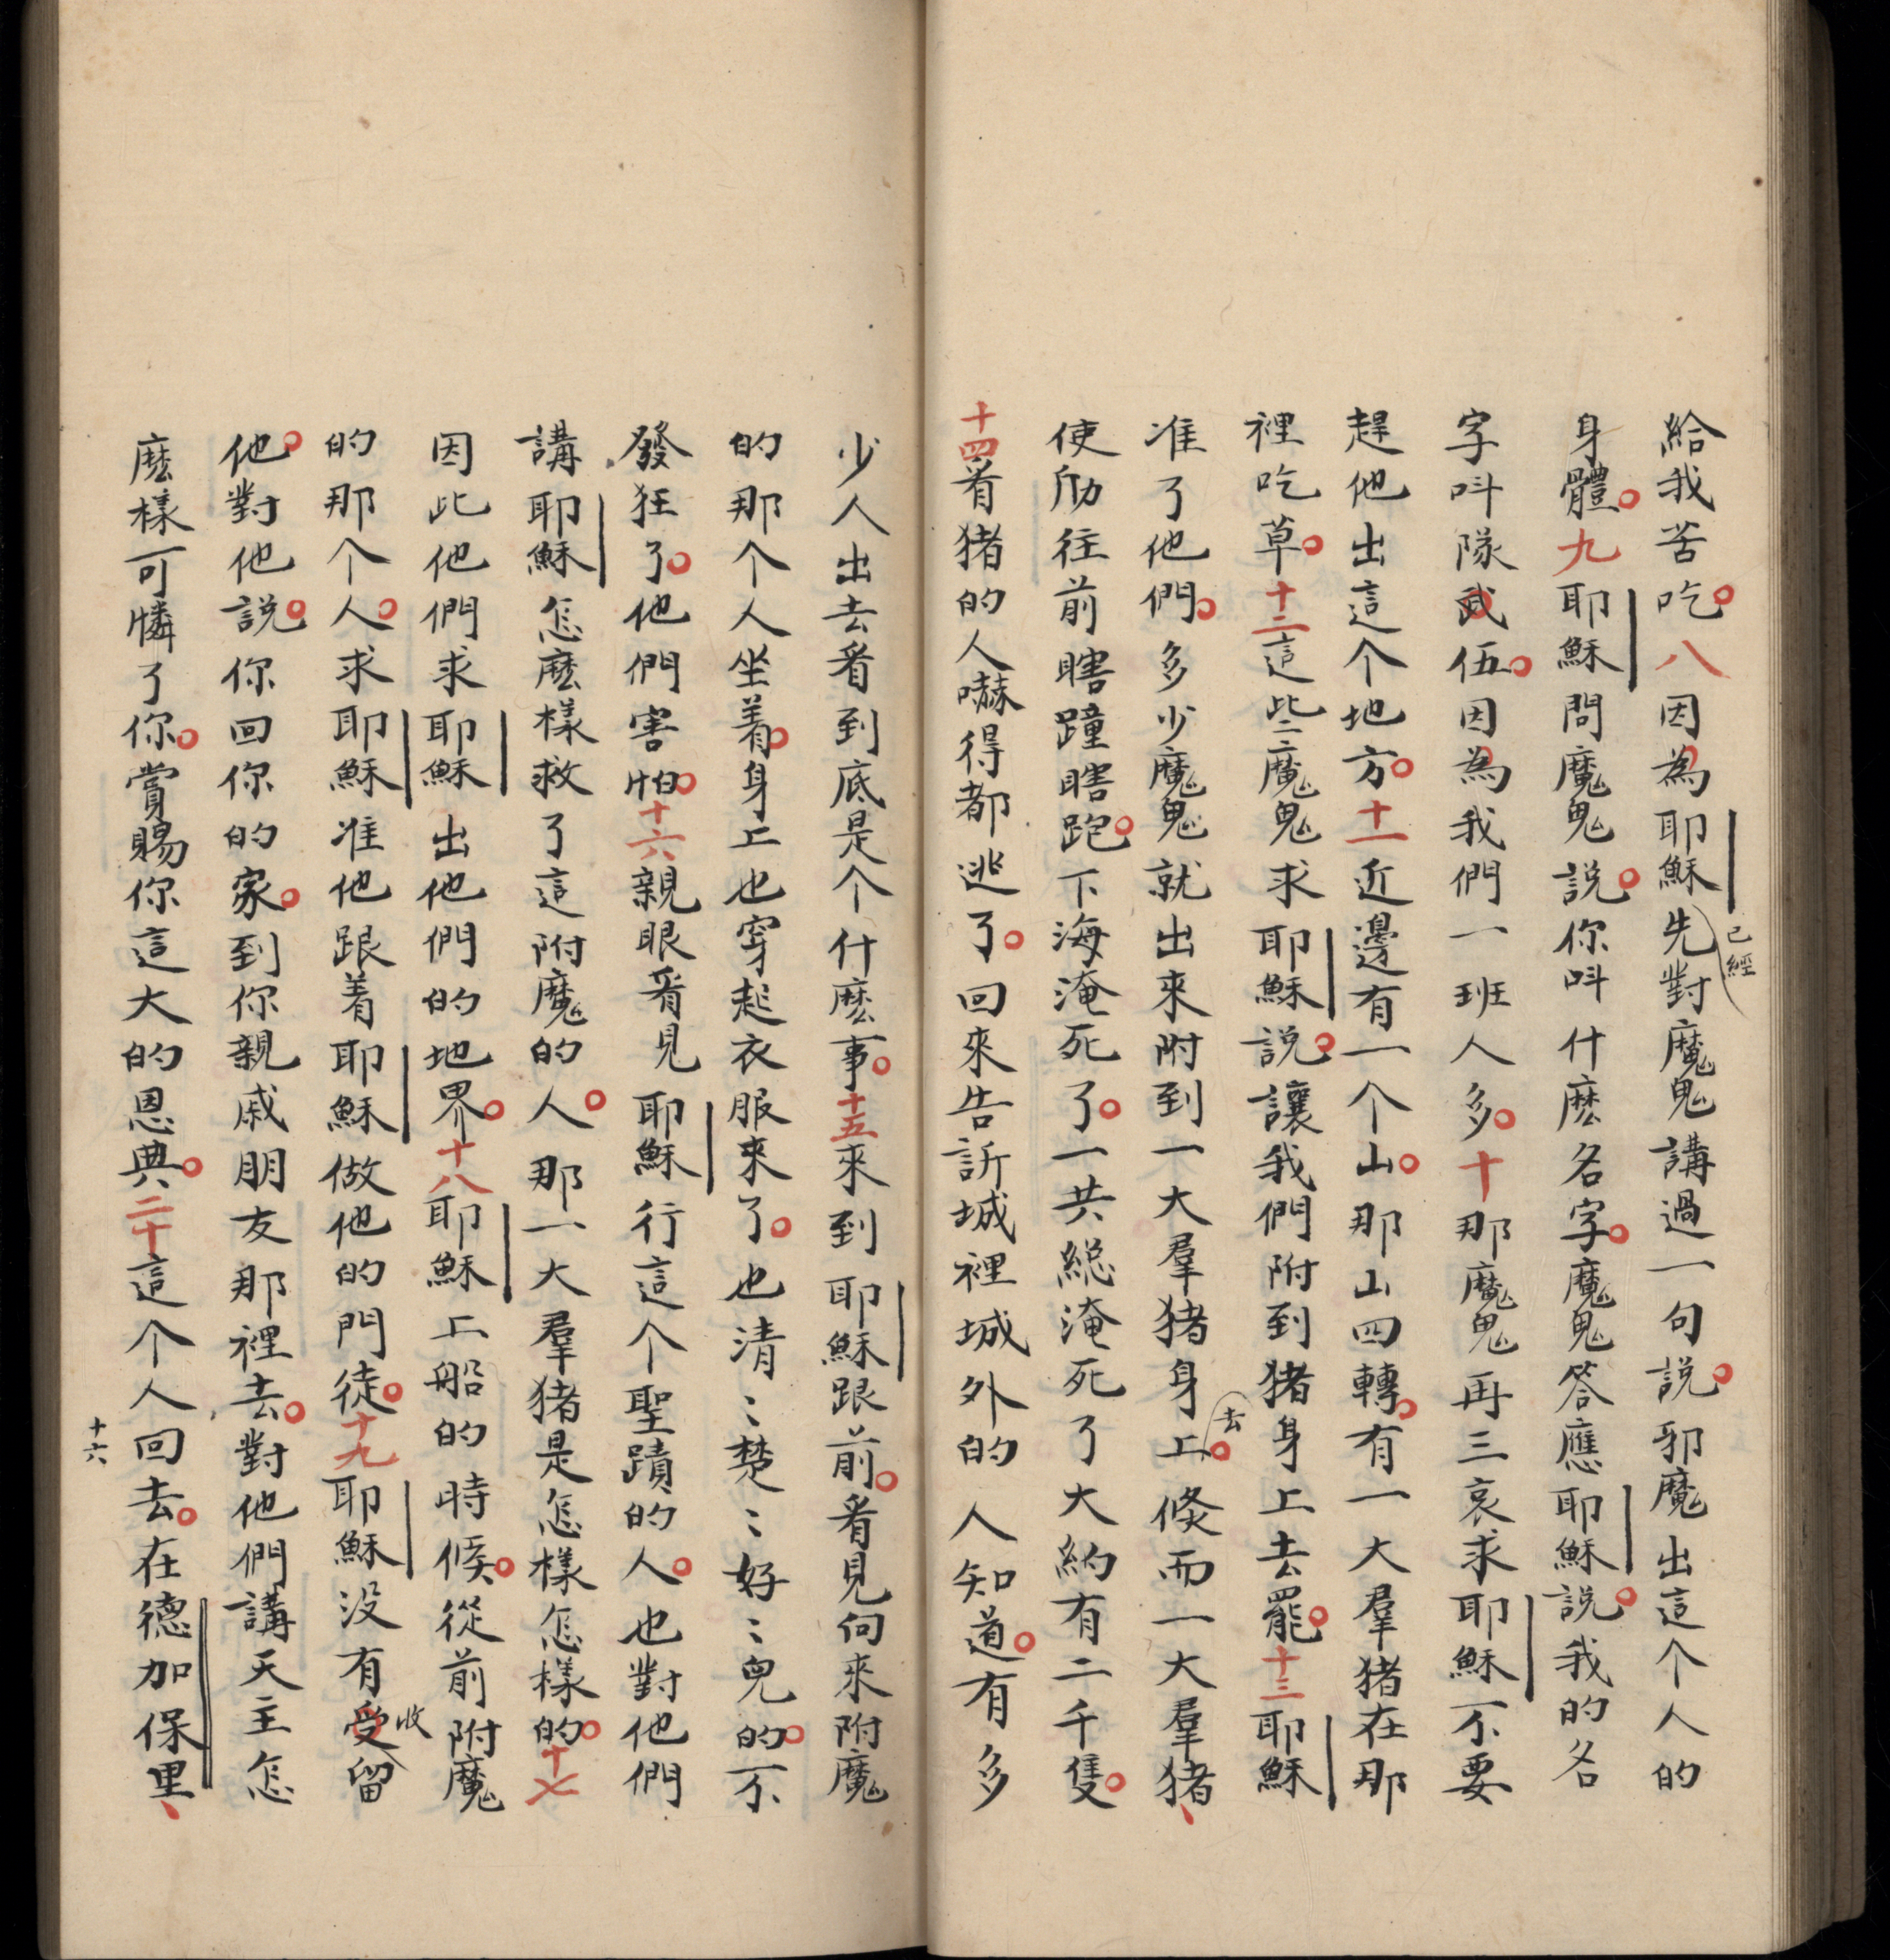 給我苦吃。八因為耶穌先已經對魔鬼講過一句説。邪魔出這个人的
身體。九耶穌問魔鬼説。你呌什麽名字。魔鬼答應耶穌説。我的名
字呌隊武伍。因為我們一班人多。十那魔鬼再三哀求耶穌不要
趕他出這个地方。十一近邊有一个山。那山四轉。有一大羣猪在那
裡吃草。十二這些魔鬼求耶穌説。讓我們附到猪身上去罷。十三耶穌
准了他們。多少魔鬼就出來附到一大羣猪身上去。倐而一大羣猪、
使劤往前瞎蹱瞎跑。下海淹死了。一共總淹死了大約有二千隻。
十四看猪的人嚇得都逃了。回來告訴城裡城外的人知道。有多
少人出去看到底是个什麽事。十五來到耶穌跟前。看見向來附魔
的那个人坐着。身上也穿起衣服來了。也清〻楚〻好〻兒的。不
發狂了。他們害怕。十六親眼看見耶穌行這个聖蹟的人。也對他們
講耶穌怎麽樣救了這附魔的人。那一大羣猪是怎樣怎樣的。十七
因此他們求耶穌出他們的地界。十八耶穌上船的時候。從前附魔
的那个人。求耶穌准他跟着耶穌做他的門徒。十九耶穌没有受收留
他。對他説。你回你的家。到你親戚朋友那裡去。對他們講天主怎
麽樣可憐了你。賞賜你這大的恩典。二十這个人回去。在德加保里、
十六